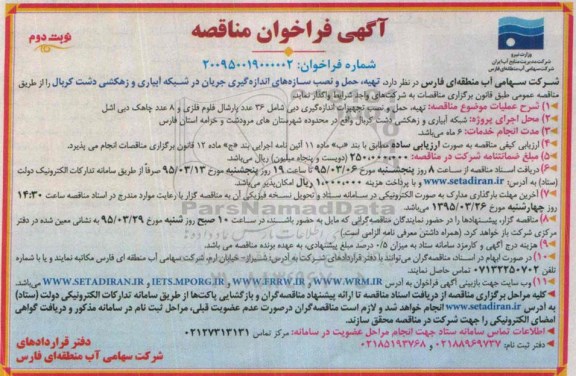 آگهی فراخوان مناقصه
نوبت دوم
وزارت نیرو
شرکت مدیریت منابع آب ایران
شرکت سهامی آب منطقه‌ای فارس
شماره فراخوان: ۲۰۰۹۵۰۰۱۹۰۰۰۰۰۲
شرکت سهامی آب منطقه‌ای فارس در نظر دارد، تهیه، حمل و نصب سازه‌های اندازه‌گیری جریان در شبکه آبیاری و زهکشی دشت کربال را از طریق
مناقصه عمومی طبق قانون برگزاری مناقصات به شرکت‌های واجد شرایط واگذار نماید.
۱) شرح عملیات موضوع مناقصه: تهیه، حمل و نصب تجهیزات اندازه‌گیری دبی شامل ۳۶ عدد پارشال فلوم فلزی و ۸ عدد چاهک دبی اشل
۲) محل اجرای پروژه: شبکه آبیاری و زهکشی دشت کربال واقع در محدوده شهرستان های مرودشت و خرامه استان فارس
۳) مدت انجام خدمات: ۶ ماه می‌باشد.
۴) ارزیابی کیفی مناقصه به صورت ارزیابی ساده مطابق با بند «ب» ماده ۱۱ آئین نامه اجرایی بند «ج» ماده ۱۲ قانون برگزاری مناقصات انجام می پذیرد.
۵) مبلغ ضمانتنامه شرکت در مناقصه: ۲۵۰,۰۰۰,۰۰۰ (دویست و پنجاه میلیون) ریال می‌باشد.
۶) دریافت اسناد مناقصه از ساعت ۸ روز پنجشنبه مورخ ۹۵/۰۳/۰۶ تا ساعت ۱۹ روز پنجشنبه مورخ ۹۵/۰۳/۱۳ صرفاً از طریق سامانه تدارکات الکترونیک دولت
(ستاد) به آدرس: www.setadiran.ir و با پرداخت هزینه ۱,۰۰۰,۰۰۰ ریال امکان‌پذیر می‌باشد.
۷) آخرین مهلت بارگذاری مدارک به صورت الکترونیکی در سامانه ستاد و تحویل نسخه فیزیکی آن به مناقصه گزار با رعایت موارد مندرج در اسناد مناقصه ساعت ۱۴:۳۰
روز چهارشنبه مورخ ۱۳۹۵/۰۳/۲۶ می‌باشد.
۸) مناقصه گزار، پیشنهادها را در حضور نمایندگان مناقصه‌گرانی که مایل به حضور باشند، در ساعت ۱۰ صبح روز شنبه مورخ ۹۵/۰۳/۲۹ به نشانی معین شده در دفتر
مرکزی شرکت باز خواهد کرد. (همراه داشتن معرفی نامه الزامی است)
۹) هزینه درج آگهی و کارمزد سامانه ستاد به میزان ۰/۵ درصد مبلغ پیشنهادی، به عهده برنده مناقصه می باشد.
۱۰) در صورت ابهام در اسناد، مناقصه‌گران می‌توانند با دفتر قراردادهای شرکت به آدرس: شیراز- خیابان ارم، شرکت سهامی آب منطقه ای فارس مکاتبه نمایند و یا با شماره
تلفن ۰۷۱۳۲۲۵۰۷۰۲ تماس حاصل نمایند.
۱۱) وب سایت جهت بازبینی آگهی فراخوان به آدرس WWW.WRM.IR و WWW.FRRW.IR و IETS.MPORG.IR و WWW.SETADIRAN.IR می‌باشد.
* کلیه مراحل برگزاری مناقصه از دریافت اسناد مناقصه تا ارائه پیشنهاد مناقصه‌گران و بازگشایی پاکت‌ها از طریق سامانه تدارکات الکترونیکی دولت (ستاد)
به آدرس www.setadiran.ir انجام خواهد شد و لازم است مناقصه‌گران درصورت عدم عضویت قبلی، مراحل ثبت نام در سامانه مذکور و دریافت گواهی
امضای الکترونیکی را جهت شرکت در مناقصه محقق سازند.
* اطلاعات تماس سامانه ستاد جهت انجام مراحل عضویت در سامانه: مرکز تماس ۰۲۱۲۷۳۱۳۱۳۱
* دفتر ثبت نام: ۰۲۱۸۸۹۶۹۷۳۷ و ۰۲۱۸۵۱۹۳۷۶۸
دفتر قراردادهای
شرکت سهامی آب منطقه‌ای فارس
ParsNamadData